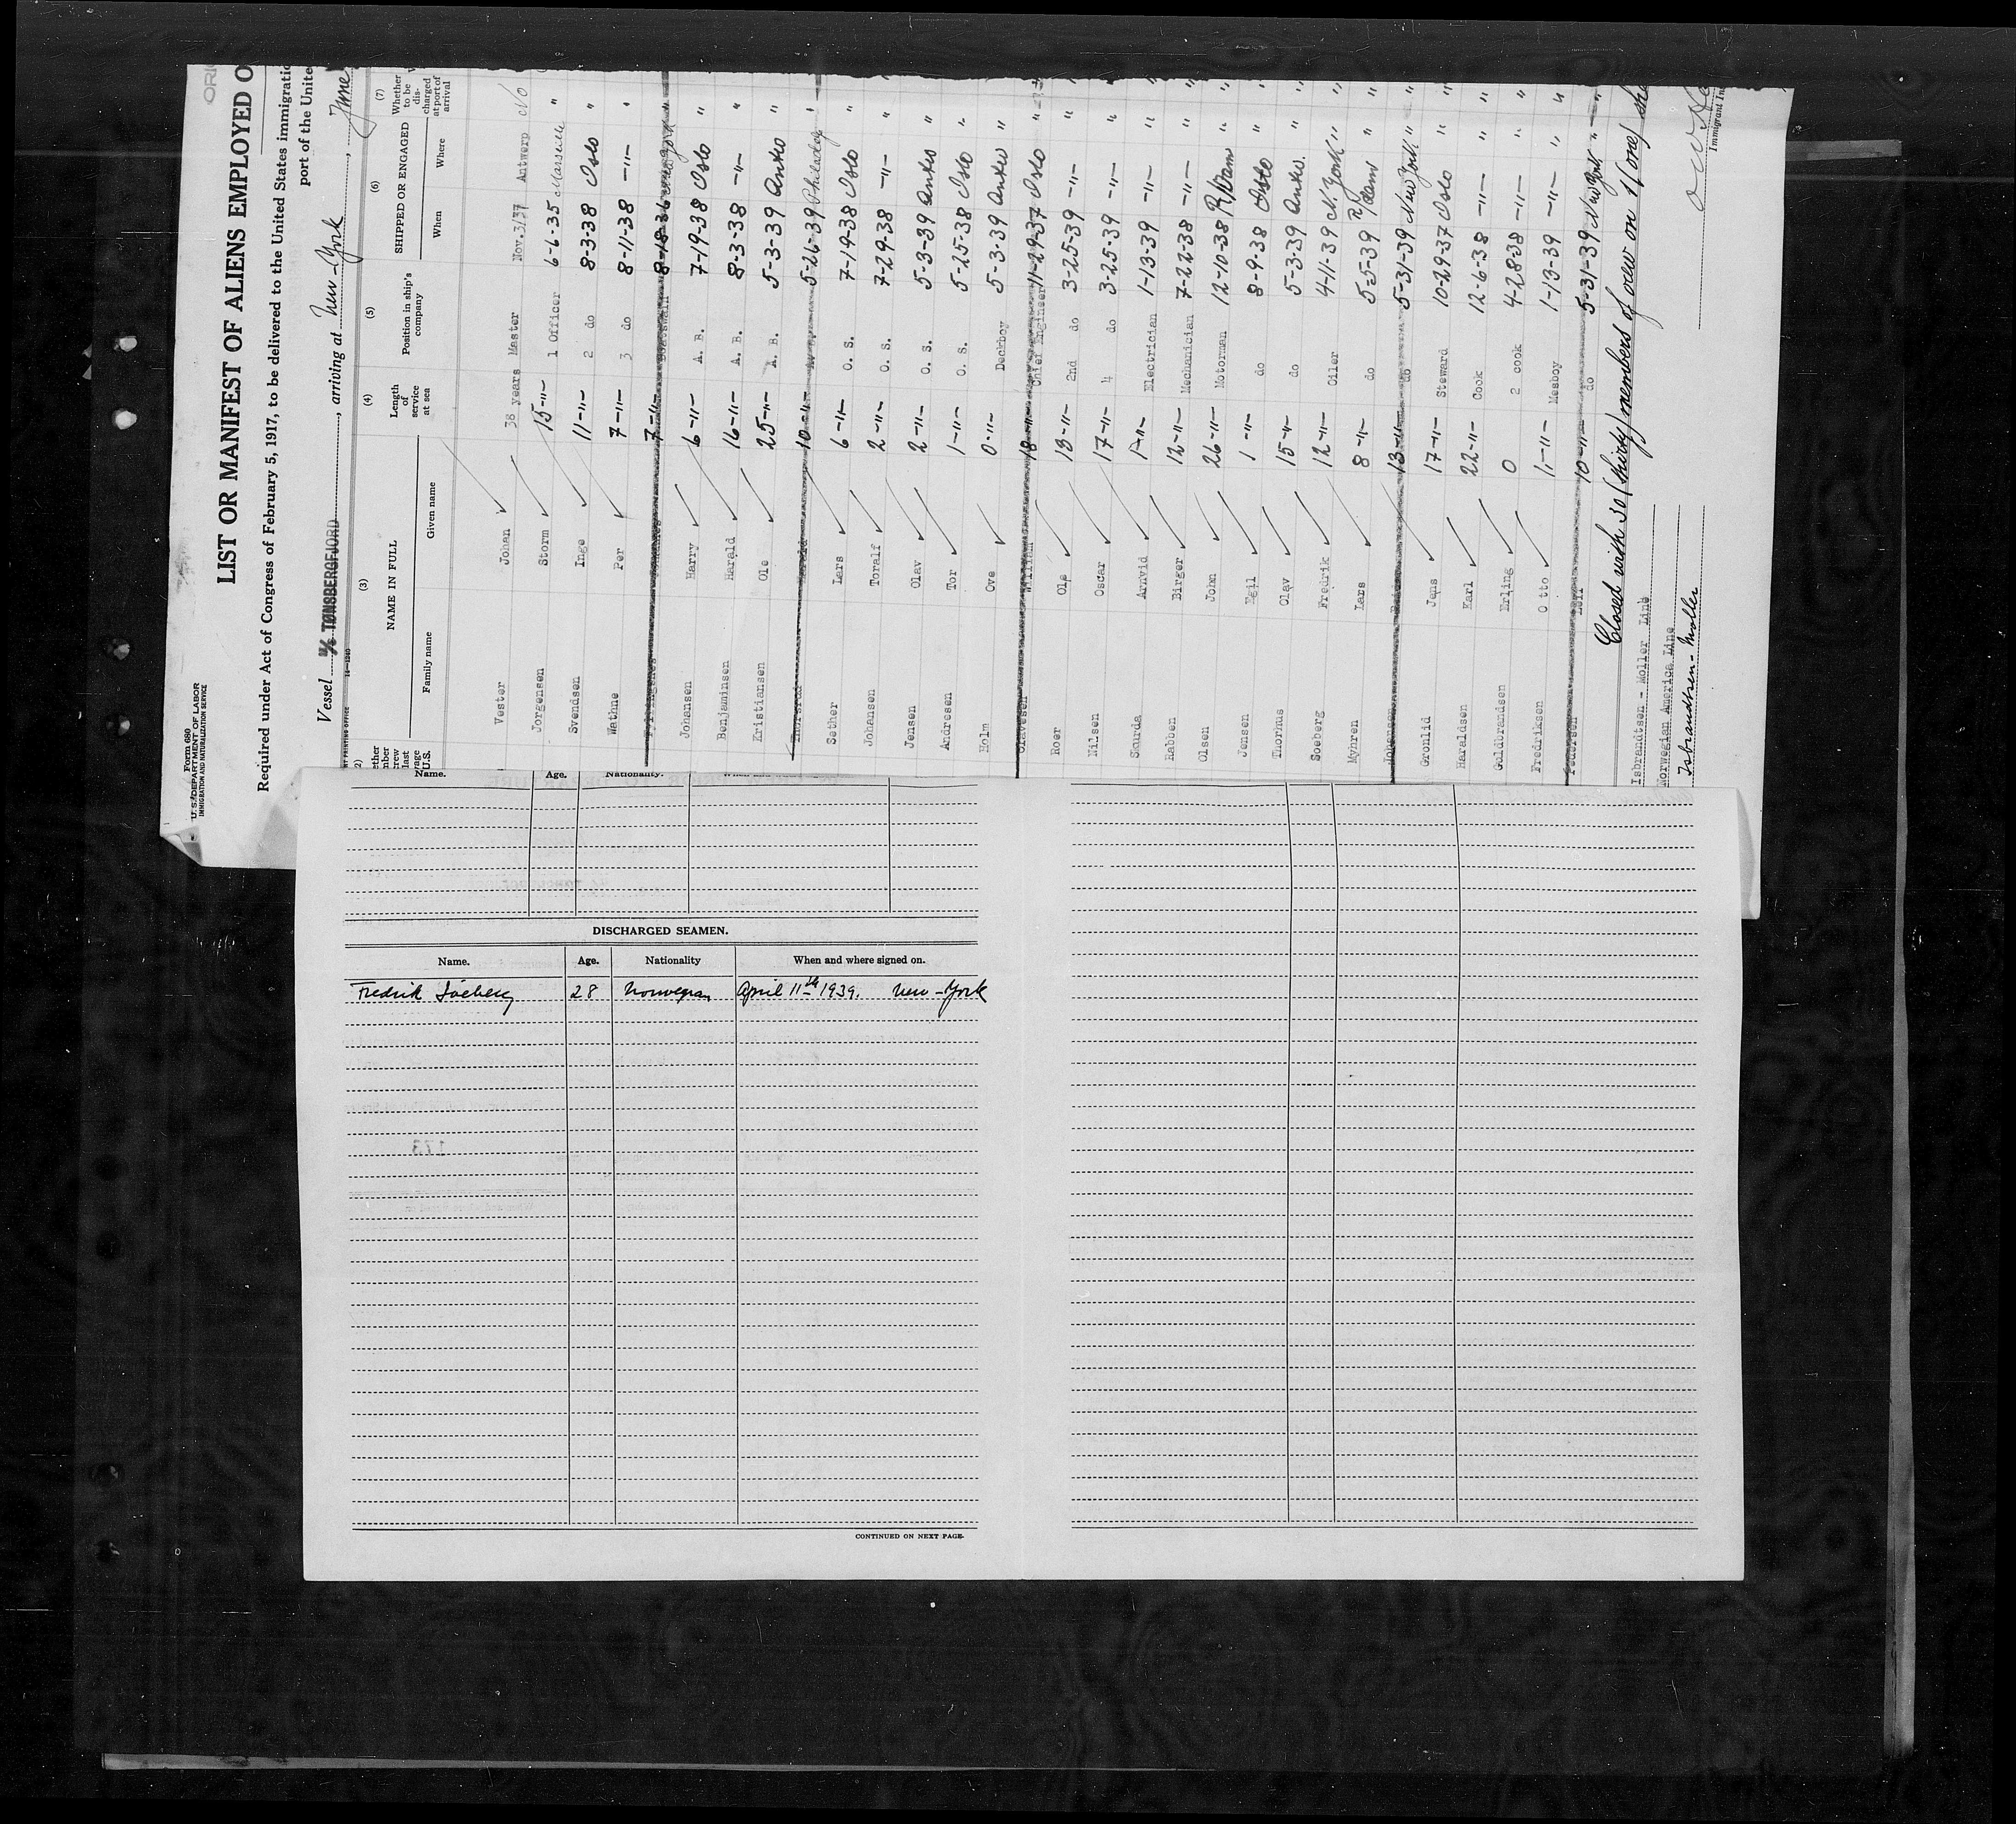 ORI
Form 680
U. S. DEPARTMENT OF LABOR
IMMIGRATION AND NATURALIZATION SERVICE
LIST OR MANIFEST OF ALIENS EMPLOYED O
Required under Act of Congress of February 5, 1917, to be delivered to the United States immigratio
port of the Unite
Vessel M/S TØNSBERGFJORD, arriving at New-York, June
(3) (4) (5) (6) (7)
NAME IN FULL
Family name Given name
Length of service at sea
Position in ship's company
SHIPPED OR ENGAGED
When Where
Whether to be discharged at port of arrival
Vester Johan 38 years Master Nov.3/37 Antwerp No
Jorgensen Storm 15 -"- 1 Officer 6-6-35 "
Svendsen Inge 11 -"- 2 do 8-3-38 Oslo "
Wathne Per 7 -"- 3 do 8-11-38 -"- "
7 -"- Boatswain 8-18-36
Johansen Harry 6 -"- A. B. 7-19-38 Oslo "
Benjaminsen Harald 16 -"- A. B. 8-3-38 -"- "
Kristiansen Ole 25 -"- A. B. 5-3-39 Antw "
10 -"- 5-26-39 "
Sether Lars 6 -"- O. S. 7-19-38 Oslo "
Johansen Toralf 2 -"- O. S. 7-29-38 -"- "
Jensen Olav 2 -"- O. S. 5-3-39 Antw "
Andresen Tor 1 -"- O. S. 5-25-38 Oslo "
Holm Ove 0 -"- Deckboy 5-3-39 Antw "
Olavesen William 18 -"- Chief Engineer 11-29-37 Oslo "
Roer Ole 13 -"- 2nd do 3-25-39 -"- "
Nilsen Oscar 17 -"- 4 do 3-25-39 -"- "
Smørda Arnvid 1 -"- Electrician 1-13-39 -"- "
Rabben Birger 12 -"- Mechanician 7-22-38 -"- "
Olsen John 26 -"- Motorman 12-10-38 R/Dam "
Jensen Egil 1 -"- do 8-9-38 Oslo "
Thorhus Olav 15 -"- do 5-3-39 Antw. "
Soeberg Fredrik 12 -"- Oiler 4-11-39 N. York "
Myhren Lars 8 -"- do 5-5-39 R/Dam "
Johansen 13 -"- do 5-31-39 New York "
Gronlid Jens 17 -"- Steward 10-29-37 Oslo "
Haraldsen Karl 22 -"- Cook 12-6-38 -"- "
Guldbrandsen Erling 0 2 cook 4-28-38 -"- "
Fredriksen Otto 1 -"- Mesboy 1-13-39 -"- "
Pedersen Leif 10 -"- do 5-31-39 New York "
Closed with 30 (thirty) members of crew on 1 (one)
Isbrandtsen - Moller Line
Norwegian America Line
Isbrandtsen-Moller
Immigrant In
Name. Age. Nationality.
DISCHARGED SEAMEN.
Name. Age. Nationality When and where signed on.
Fredrik Söeberg 28 Norwegian April 11th 1939. New-York
173
CONTINUED ON NEXT PAGE.